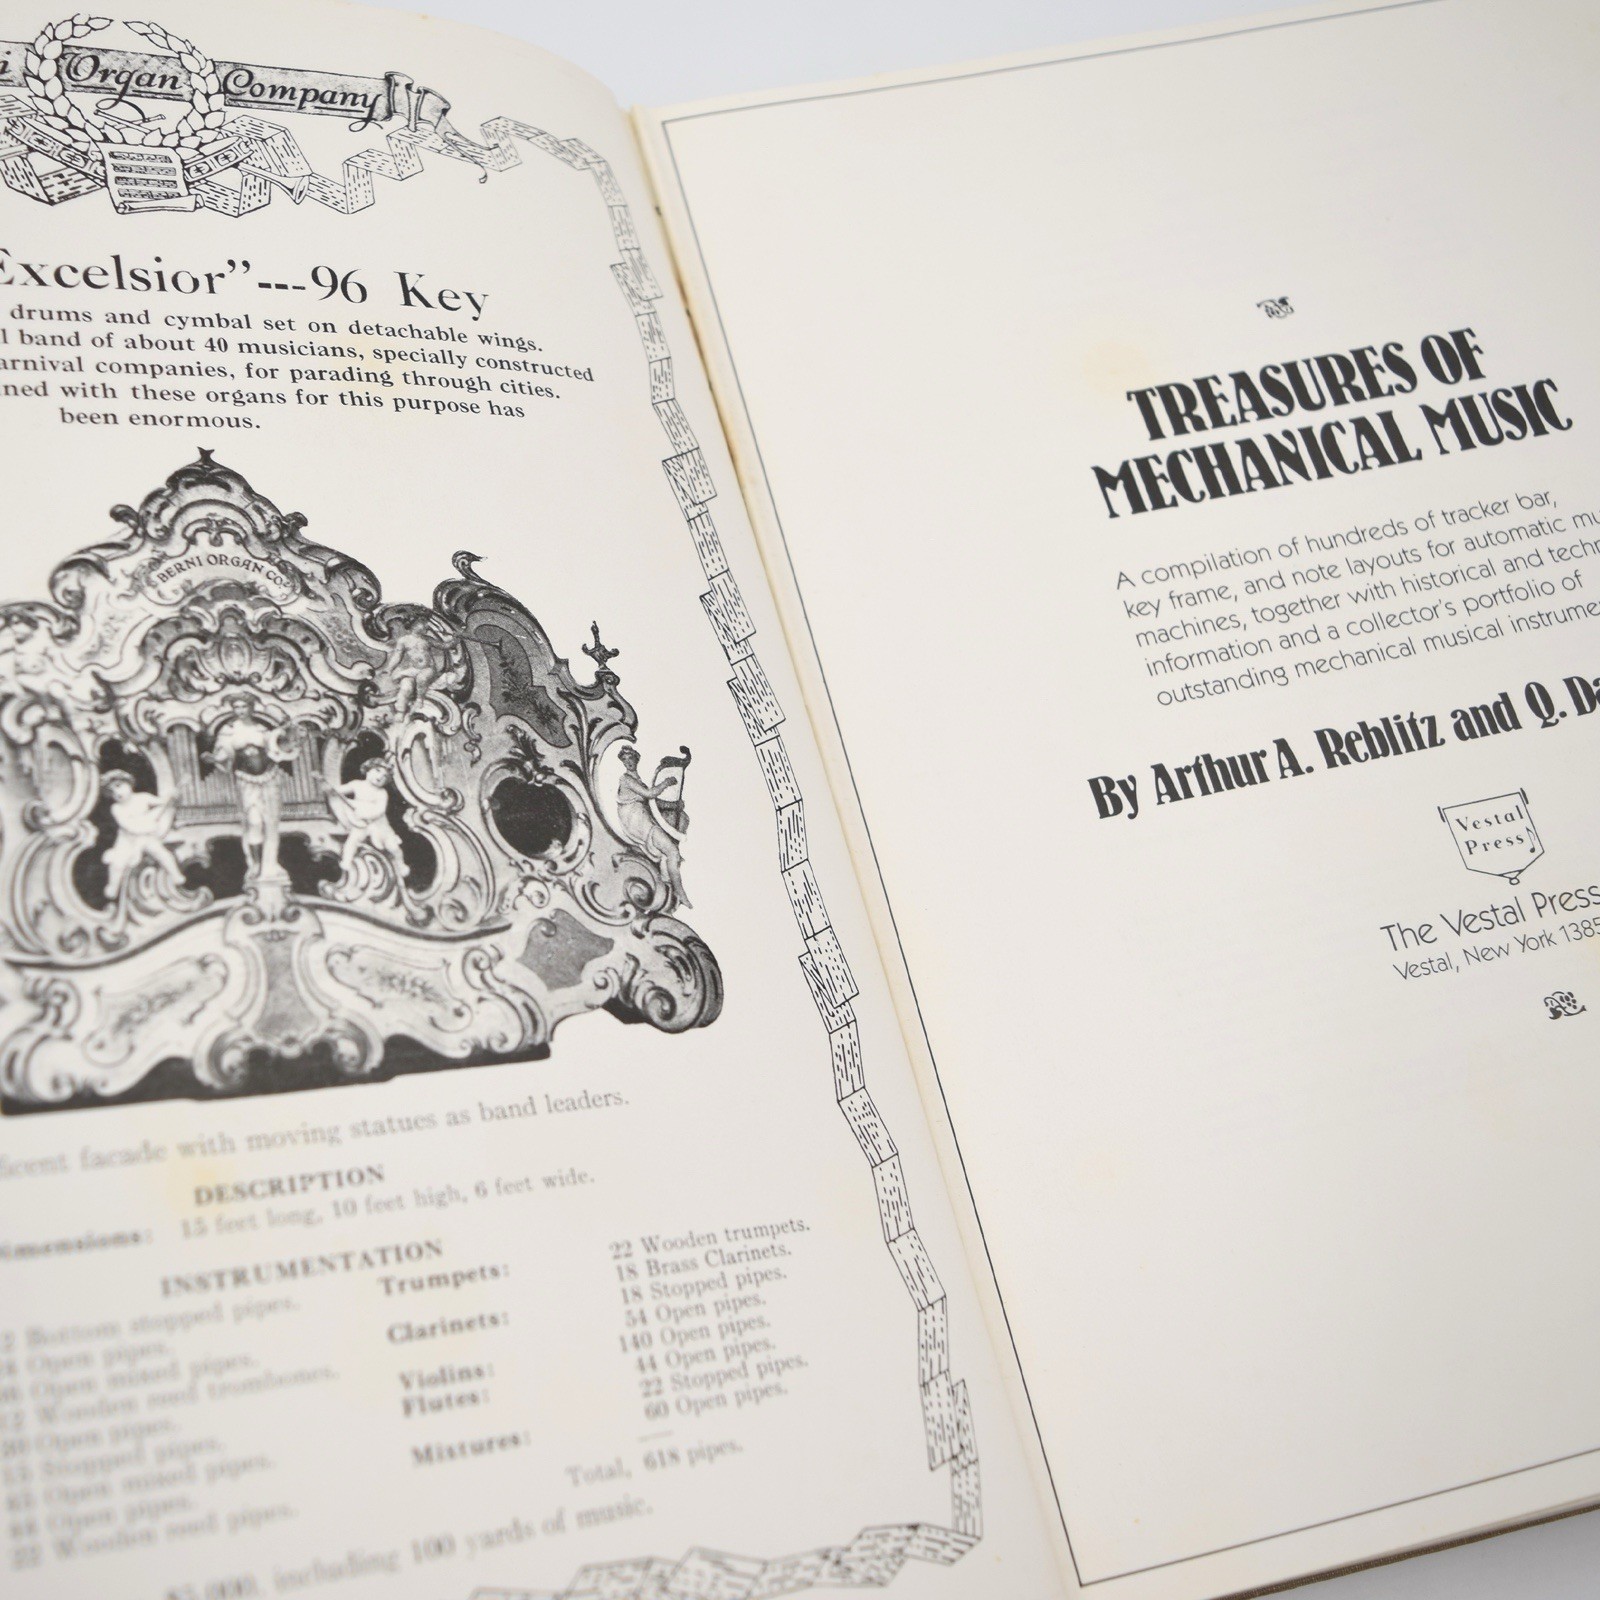 Organ Company
Excelsior”---96 Key
drums and cymbal set on detachable wings.
band of about 40 musicians, specially constructed
carnival companies, for parading through cities.
with these organs for this purpose has
been enormous.
BERNI ORGAN CO.
facade with moving statues as band leaders.
DESCRIPTION
Dimensions: 15 feet long, 10 feet high, 6 feet wide.
INSTRUMENTATION
Bottom stopped pipes.
Open pipes.
Open mixed pipes.
Wooden reed trombones.
Open pipes.
Stopped pipes.
Open mixed pipes.
Open pipes.
Wooden reed pipes.
Trumpets: 22 Wooden trumpets.
18 Brass Clarinets.
Clarinets: 18 Stopped pipes.
54 Open pipes.
Violins: 140 Open pipes.
Flutes: 44 Open pipes.
22 Stopped pipes.
Mixtures: 60 Open pipes.
Total, 618 pipes.
including 100 yards of music.
TREASURES OF
MECHANICAL MUSIC
A compilation of hundreds of tracker bar,
key frame, and note layouts for automatic
machines, together with historical and
information and a collector's portfolio of
outstanding mechanical musical
By Arthur A. Reblitz and Q.
Vestal
Press
The Vestal Press
Vestal, New York 1385